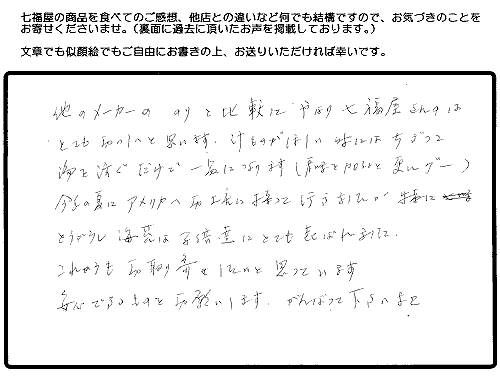 七福屋の商品を食べてのご感想、他店との違いなど何でも結構ですので、お気づきのことを
お寄せくださいませ。（裏面に過去に頂いたお声を掲載しております。）
文章でも似顔絵でもご自由にお書きの上、お送りいただければ幸いです。
他のメーカーの のりと比較に やはり七福屋さんのは
とても おいしいと思います。汁ものがほしい時にはちぎって
湯を注ぐだけで 一品になります
今年の夏に アメリカへ お土産に持って行きましたが 特に
とうがらし 海苔は 子供達にとても喜ばれました。
これからも お取り寄せしたいと思っています
安心できるものを お願いします。がんばって下さいませ